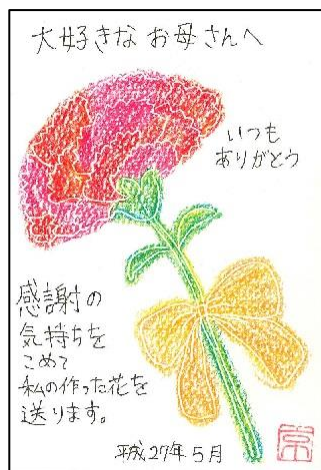 大好きな お母さんへ
いつも
ありがとう
感謝の
気持ちを
こめて
私の作った花を
送ります。
平成27年5月
京